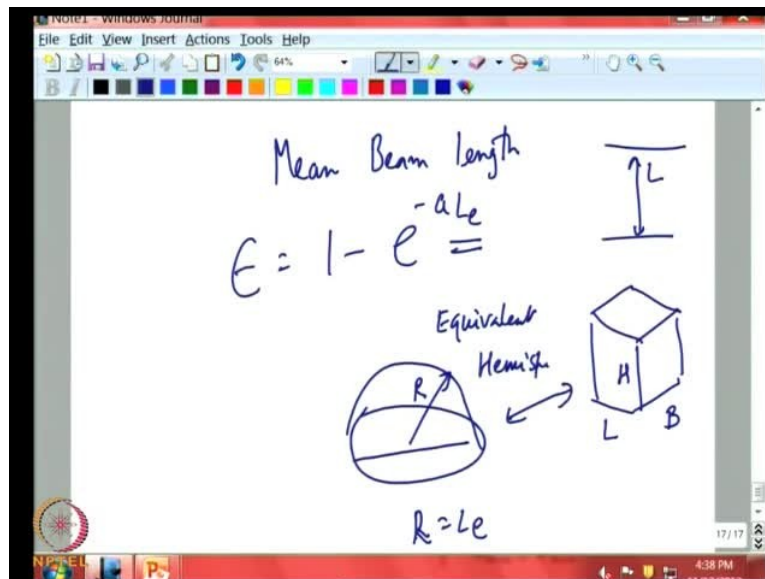 Note1 - Windows Journal
File Edit View Insert Actions Tools Help
64%
B I
Mean Beam length
L
ϵ = 1 - e^-aLe
Equivalent
R
H
L B
R = Le
17/17
NPTEL
4:38 PM